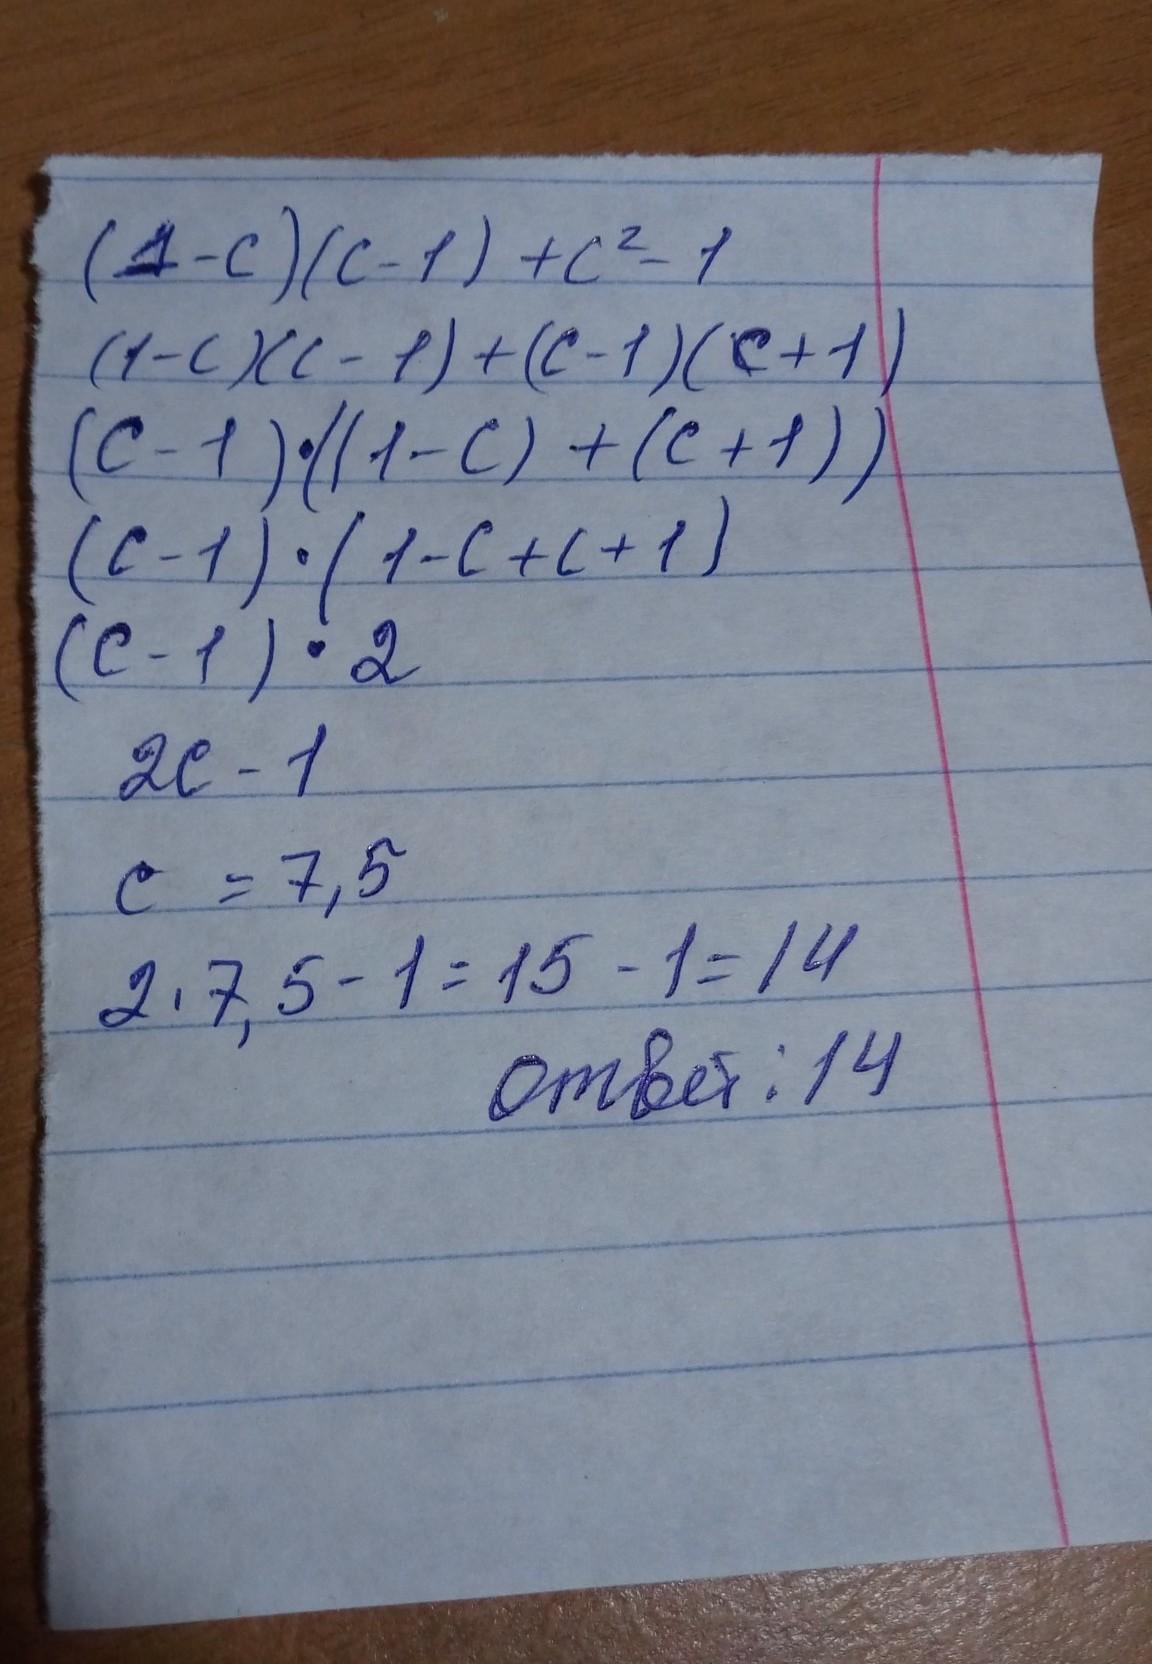 (1-c)(c-1)+c²-1
(1-c)(c-1)+(c-1)(c+1)
(c-1)·((1-c)+(c+1))
(c-1)·(1-c+c+1)
(c-1)·2
2c-1
c=7,5
2·7,5-1=15-1=14
ответ:14